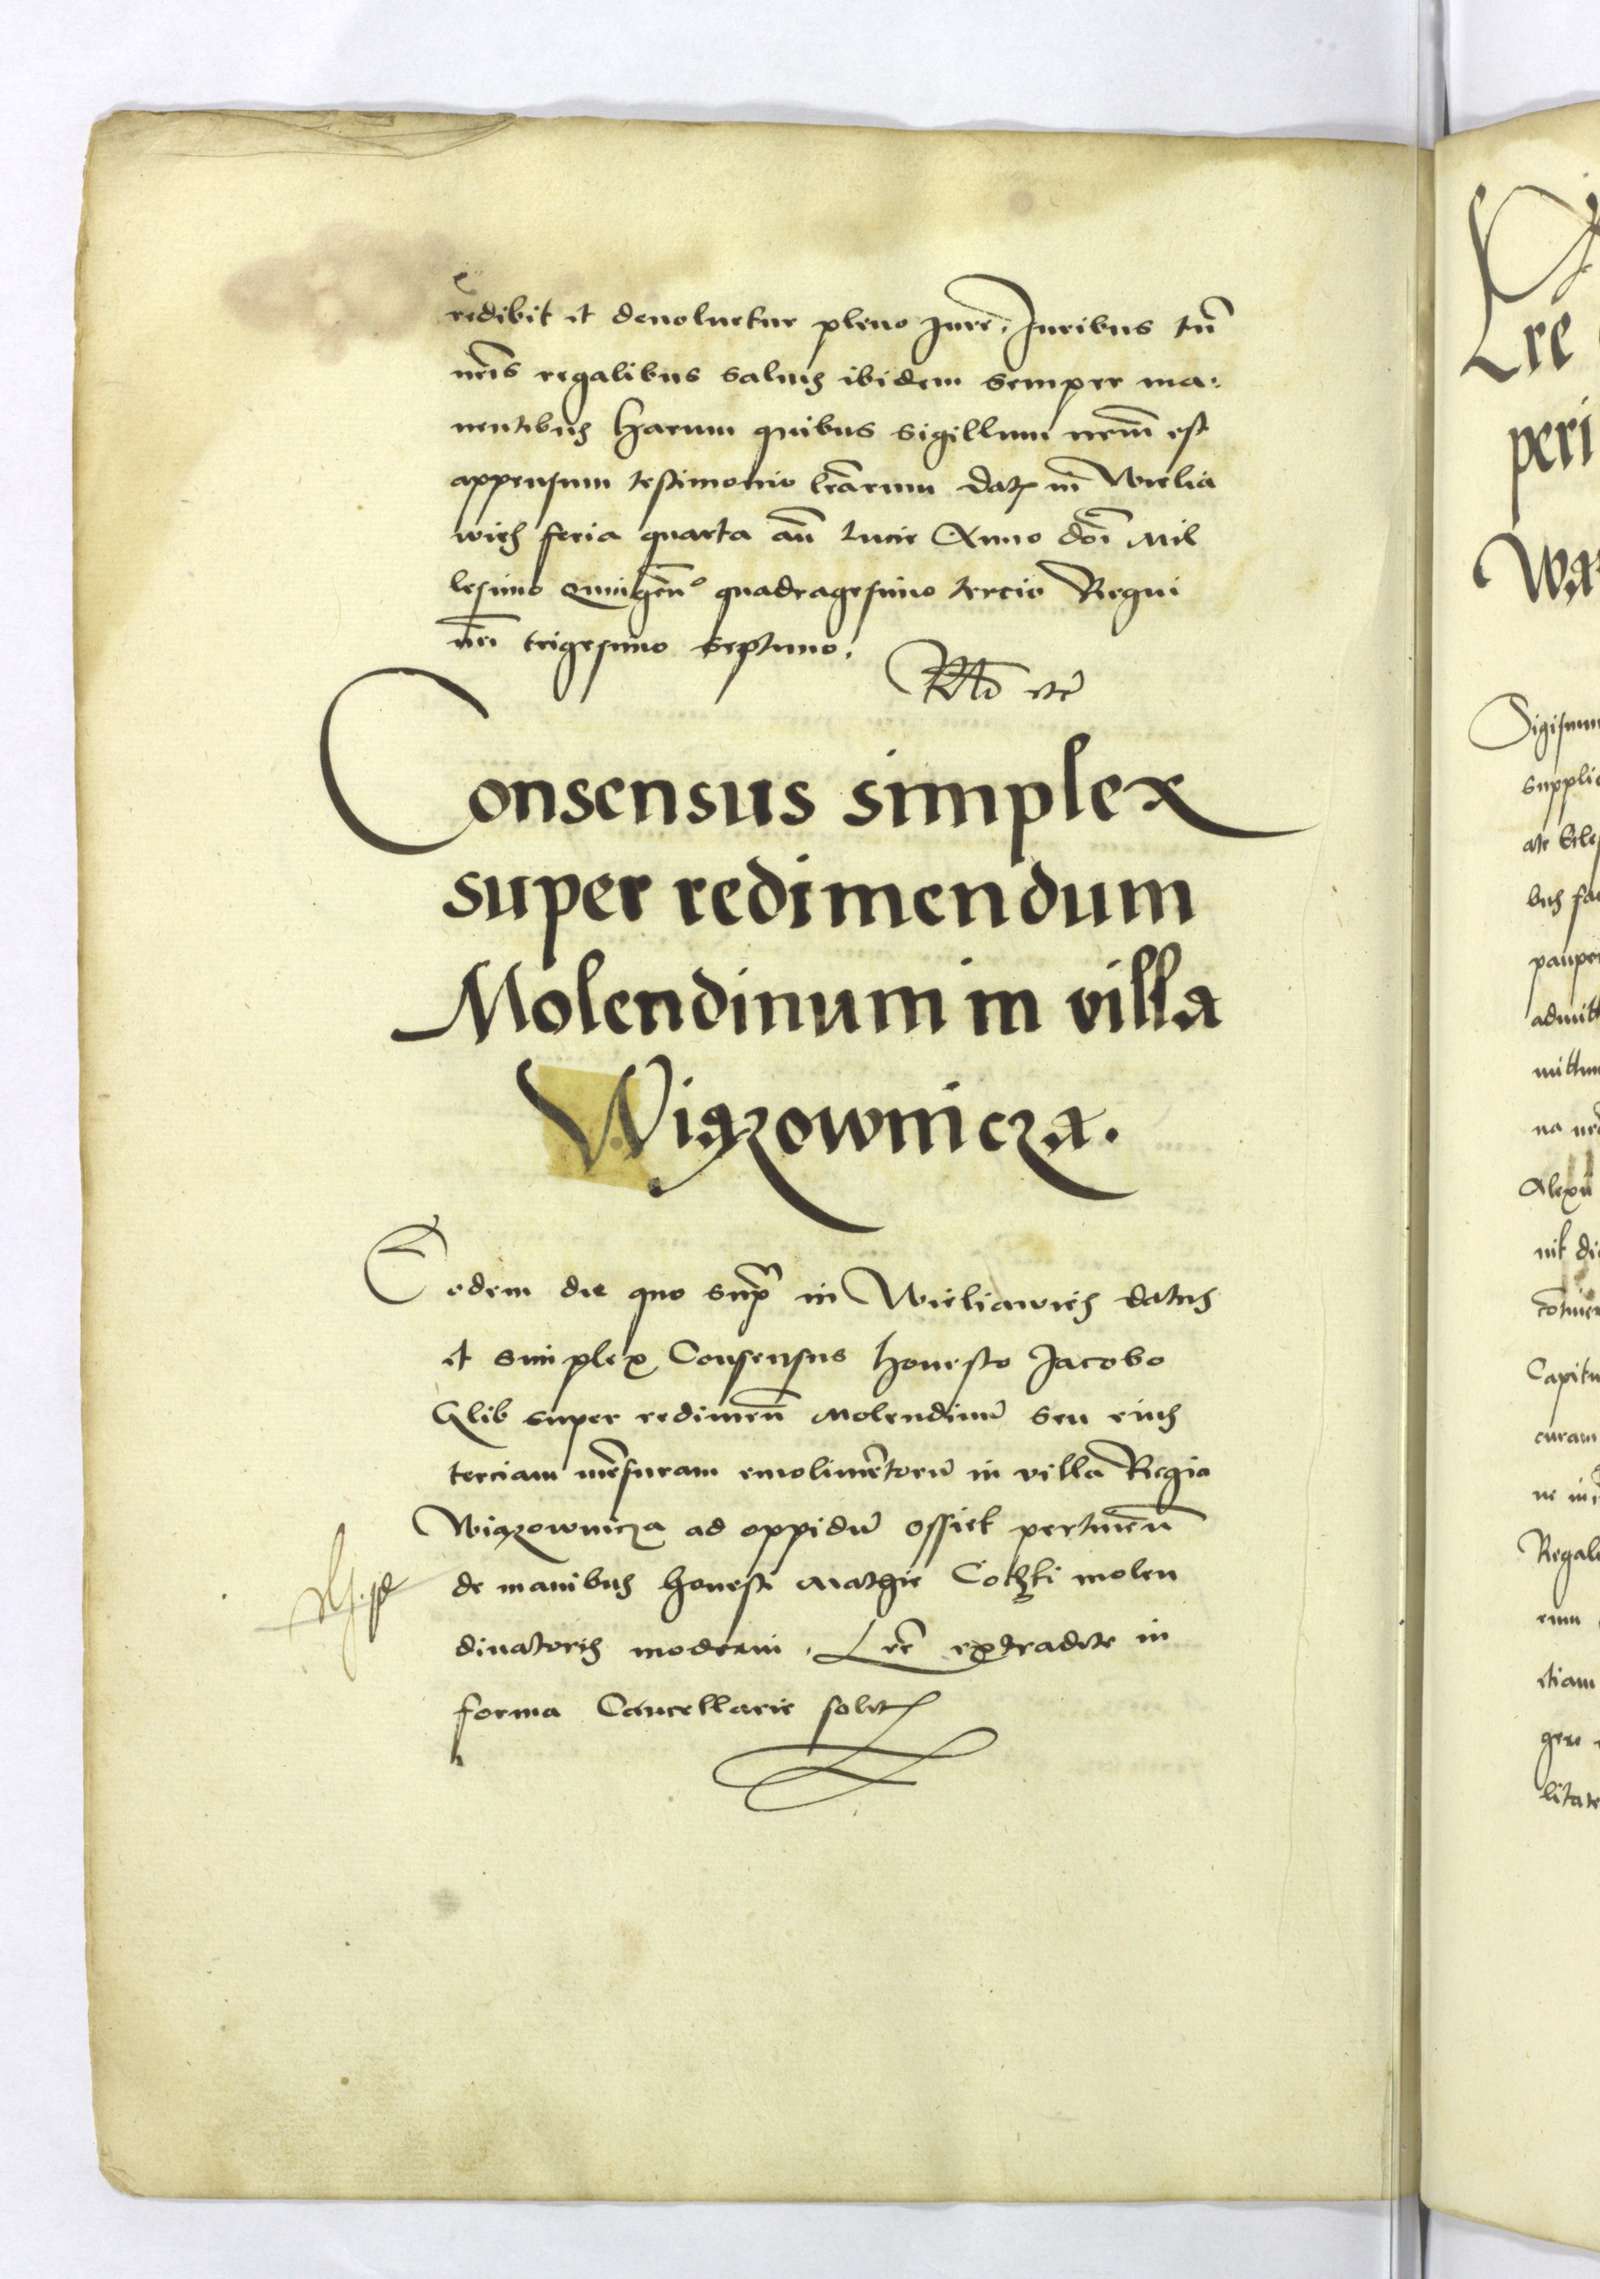 redibit et devoluetur pleno Jure, Juribus tn̄
nr̄is regalibus saluis ibidem semper ma:
nentibus harum quibus sigillum nrm̄ est
appensum testimonio lr̄arum dat in Wielia
wies feria quarta an̄ lucie Anno dn̄i Mil
lesimo quingen̄o quadragesimo tercio Regni
nr̄i trigesimo septimo.
Consensus simplex
super redimendum
Molendinum in villa
Wiązownicza.
Eodem die quo supra in Wieliawies datus
et simplex Consensus honesto Jacobo
Glib super redimen̄ Molendinū seu eius
terciam mēsuram emolimētorū in villa Regia
Wiązownicza ad oppidū ossiek pertinen̄
de manibus honesti Mathie molen
dinatoris moderni. Lr̄e extradite in
forma Cancellarie solit
Lre
peri
Sigismun
supplic
pauper
admitt
mittim
na
Alexii
nit di
Capitu
curam
Regali
eum
etiam
gere
litate